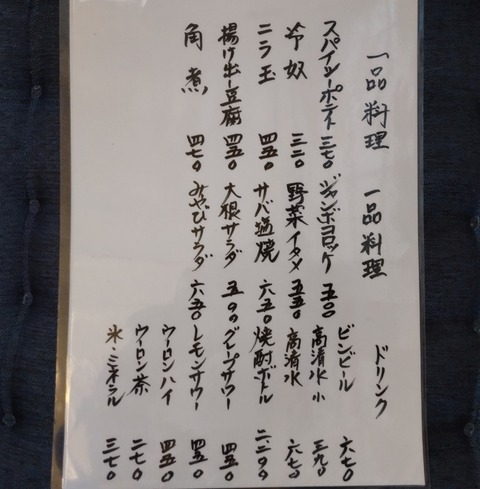 一品料理
スパイシーポテト 三七〇
冷奴 三二〇
ニラ玉 四五〇
揚げ出し豆腐 四五〇
角煮 四七〇
一品料理
ジャンボコロッケ
野菜イタメ 五五〇
サバ塩焼 六五〇
大根サラダ 五〇〇
みやびサラダ 六五〇
ドリンク
ビンビール 六七〇
高清水 小 三九〇
高清水 六七〇
焼酎ボトル 二二〇〇
グレープサワー 四五〇
レモンサワー 四五〇
ウーロンハイ 四五〇
ウーロン茶 二七〇
氷・ミネラル 三七〇